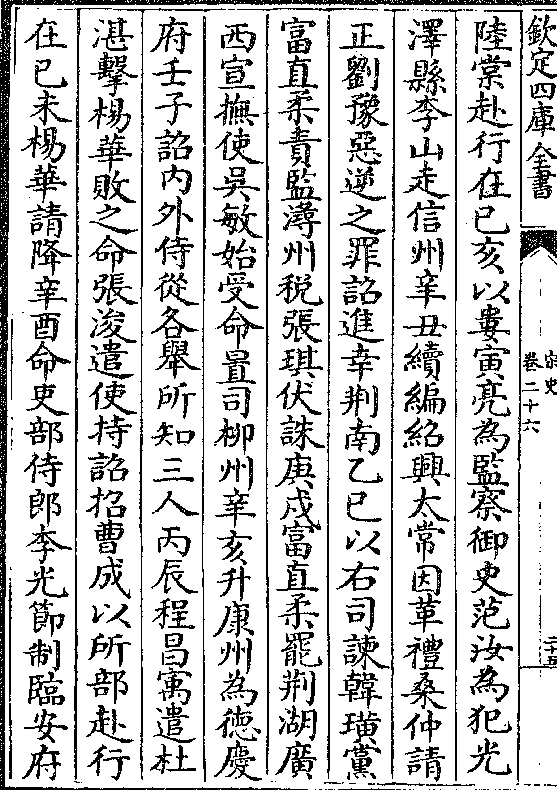 欽定四庫全書
宋史
卷二十六
二十五
陸棠赴行在己亥以婁寅亮為監察御史范汝為犯光
澤縣李山走信州辛丑續編紹興太常因革禮桑仲請
正劉豫惡逆之罪詔進幸荆南乙巳以右司諫韓璜黨
富直柔責監潯州税張琪伏誅庚戍富直柔罷荆湖廣
西宣撫使吳敏始受命置司柳州辛亥升康州為徳慶
府壬子詔内外侍從各舉所知三人丙辰程昌寓遣杜
湛擊楊華敗之命張浚遣使持詔招曹成以所部赴行
在已未楊華請降辛酉命吏部侍郎李光節制臨安府